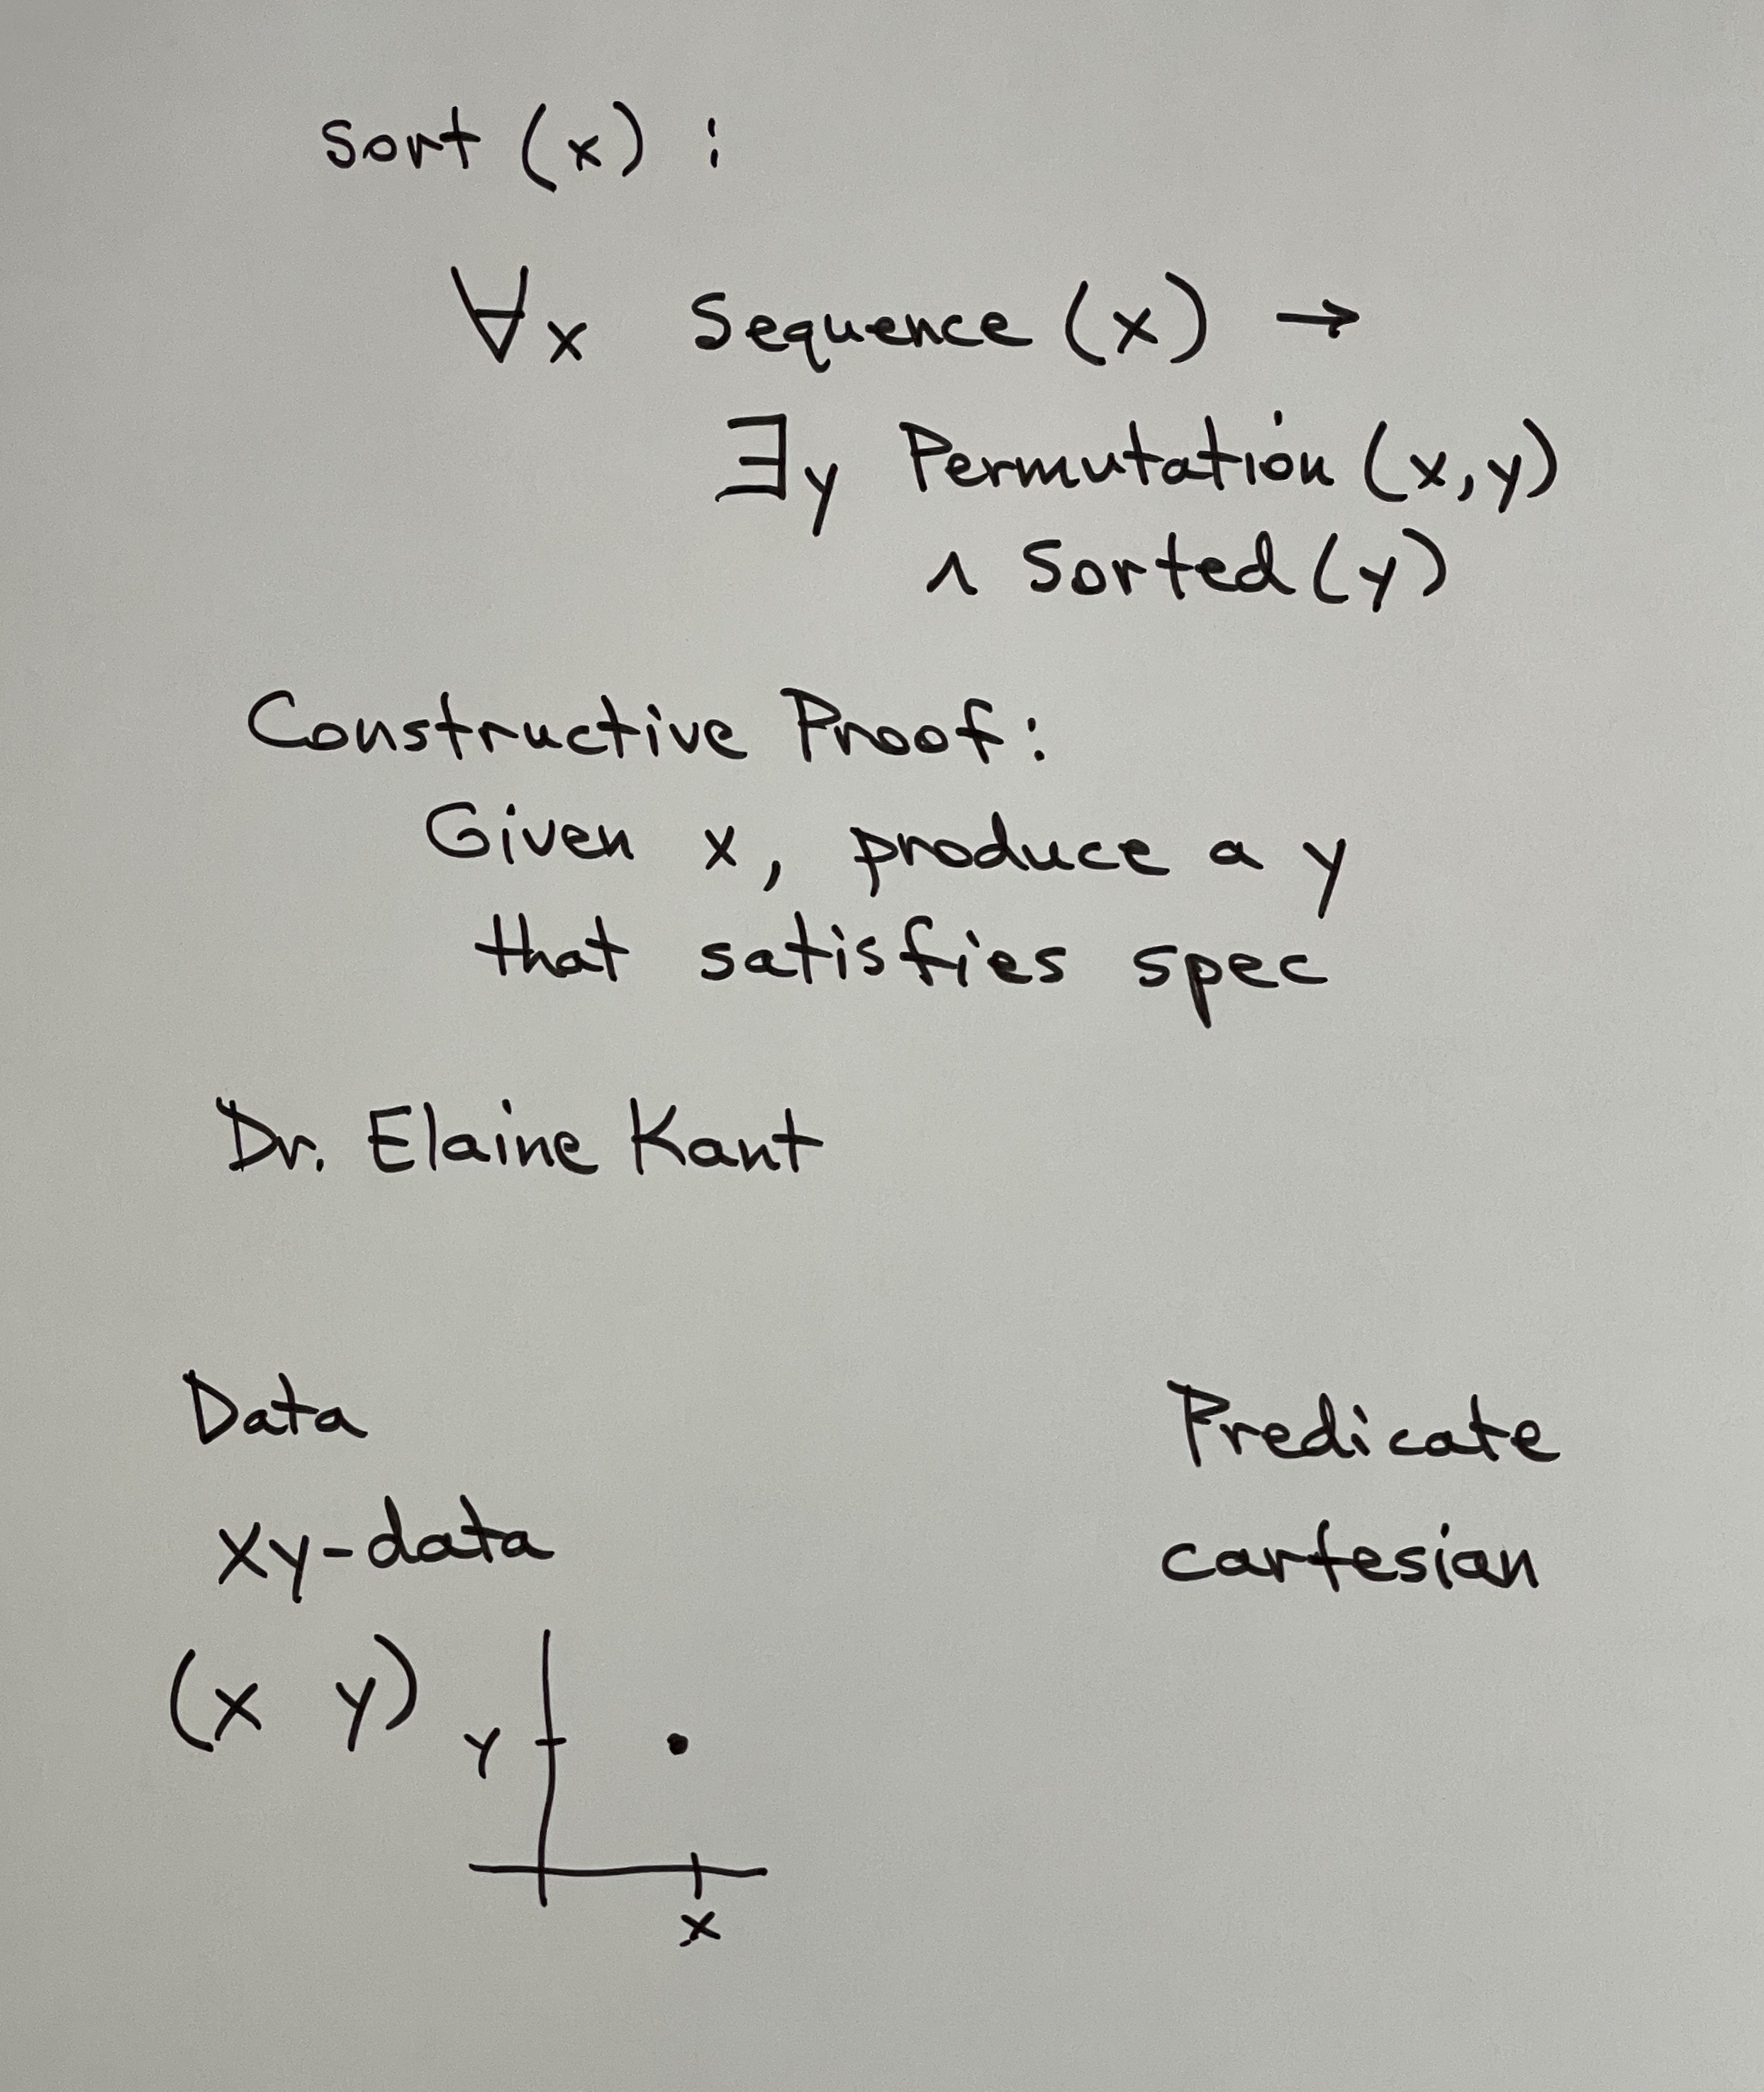 sort (x) :
∀x Sequence (x) →
∃y Permutation (x,y)
∧ Sorted (y)
Constructive Proof:
Given x, produce a y
that satisfies spec
Dr. Elaine Kant
Data Predicate
xy-data cartesian
(x y)
y
x